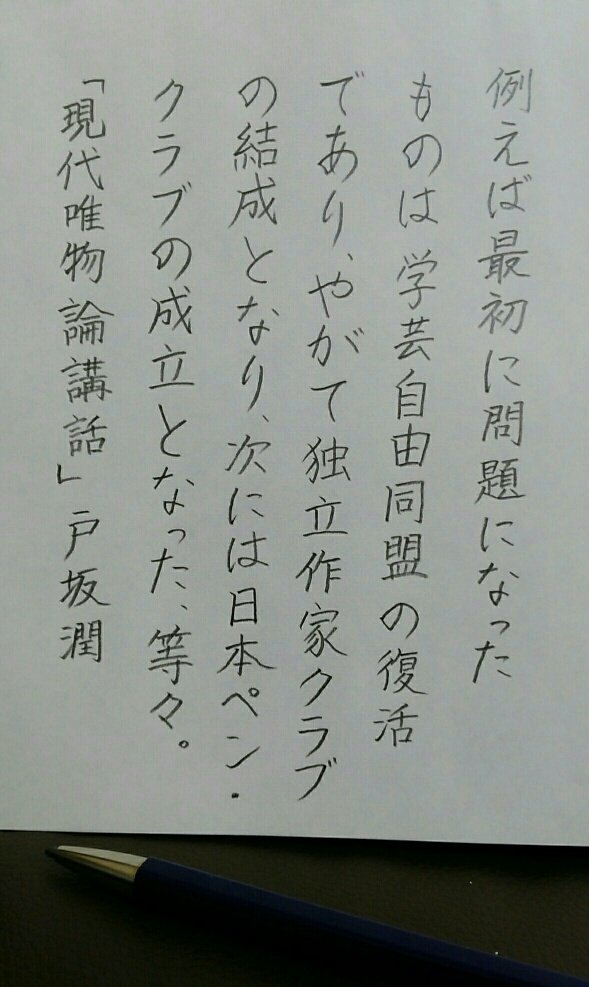 例えば最初に問題になった
ものは学芸自由同盟の復活
であり、やがて独立作家クラブ
の結成となり、次には日本ペン・
クラブの成立となった、等々。
「現代唯物論講話」戸坂潤